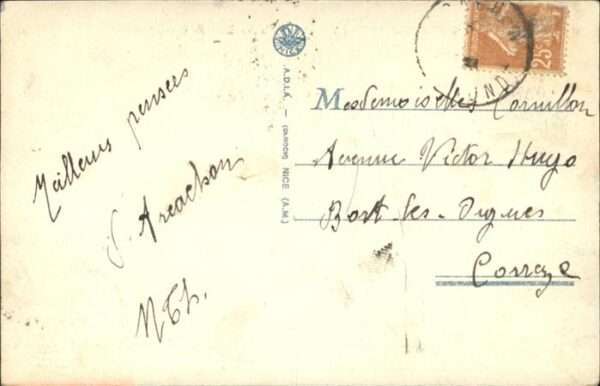 Meilleures pensées
d'Arcachon
N Th.
A.D.I.A. — (DANOCK) NICE (A.M.)
25
Mesdemoiselles Cornillon
Avenue Victor Hugo
Bort-les-Orgues
Corrèze